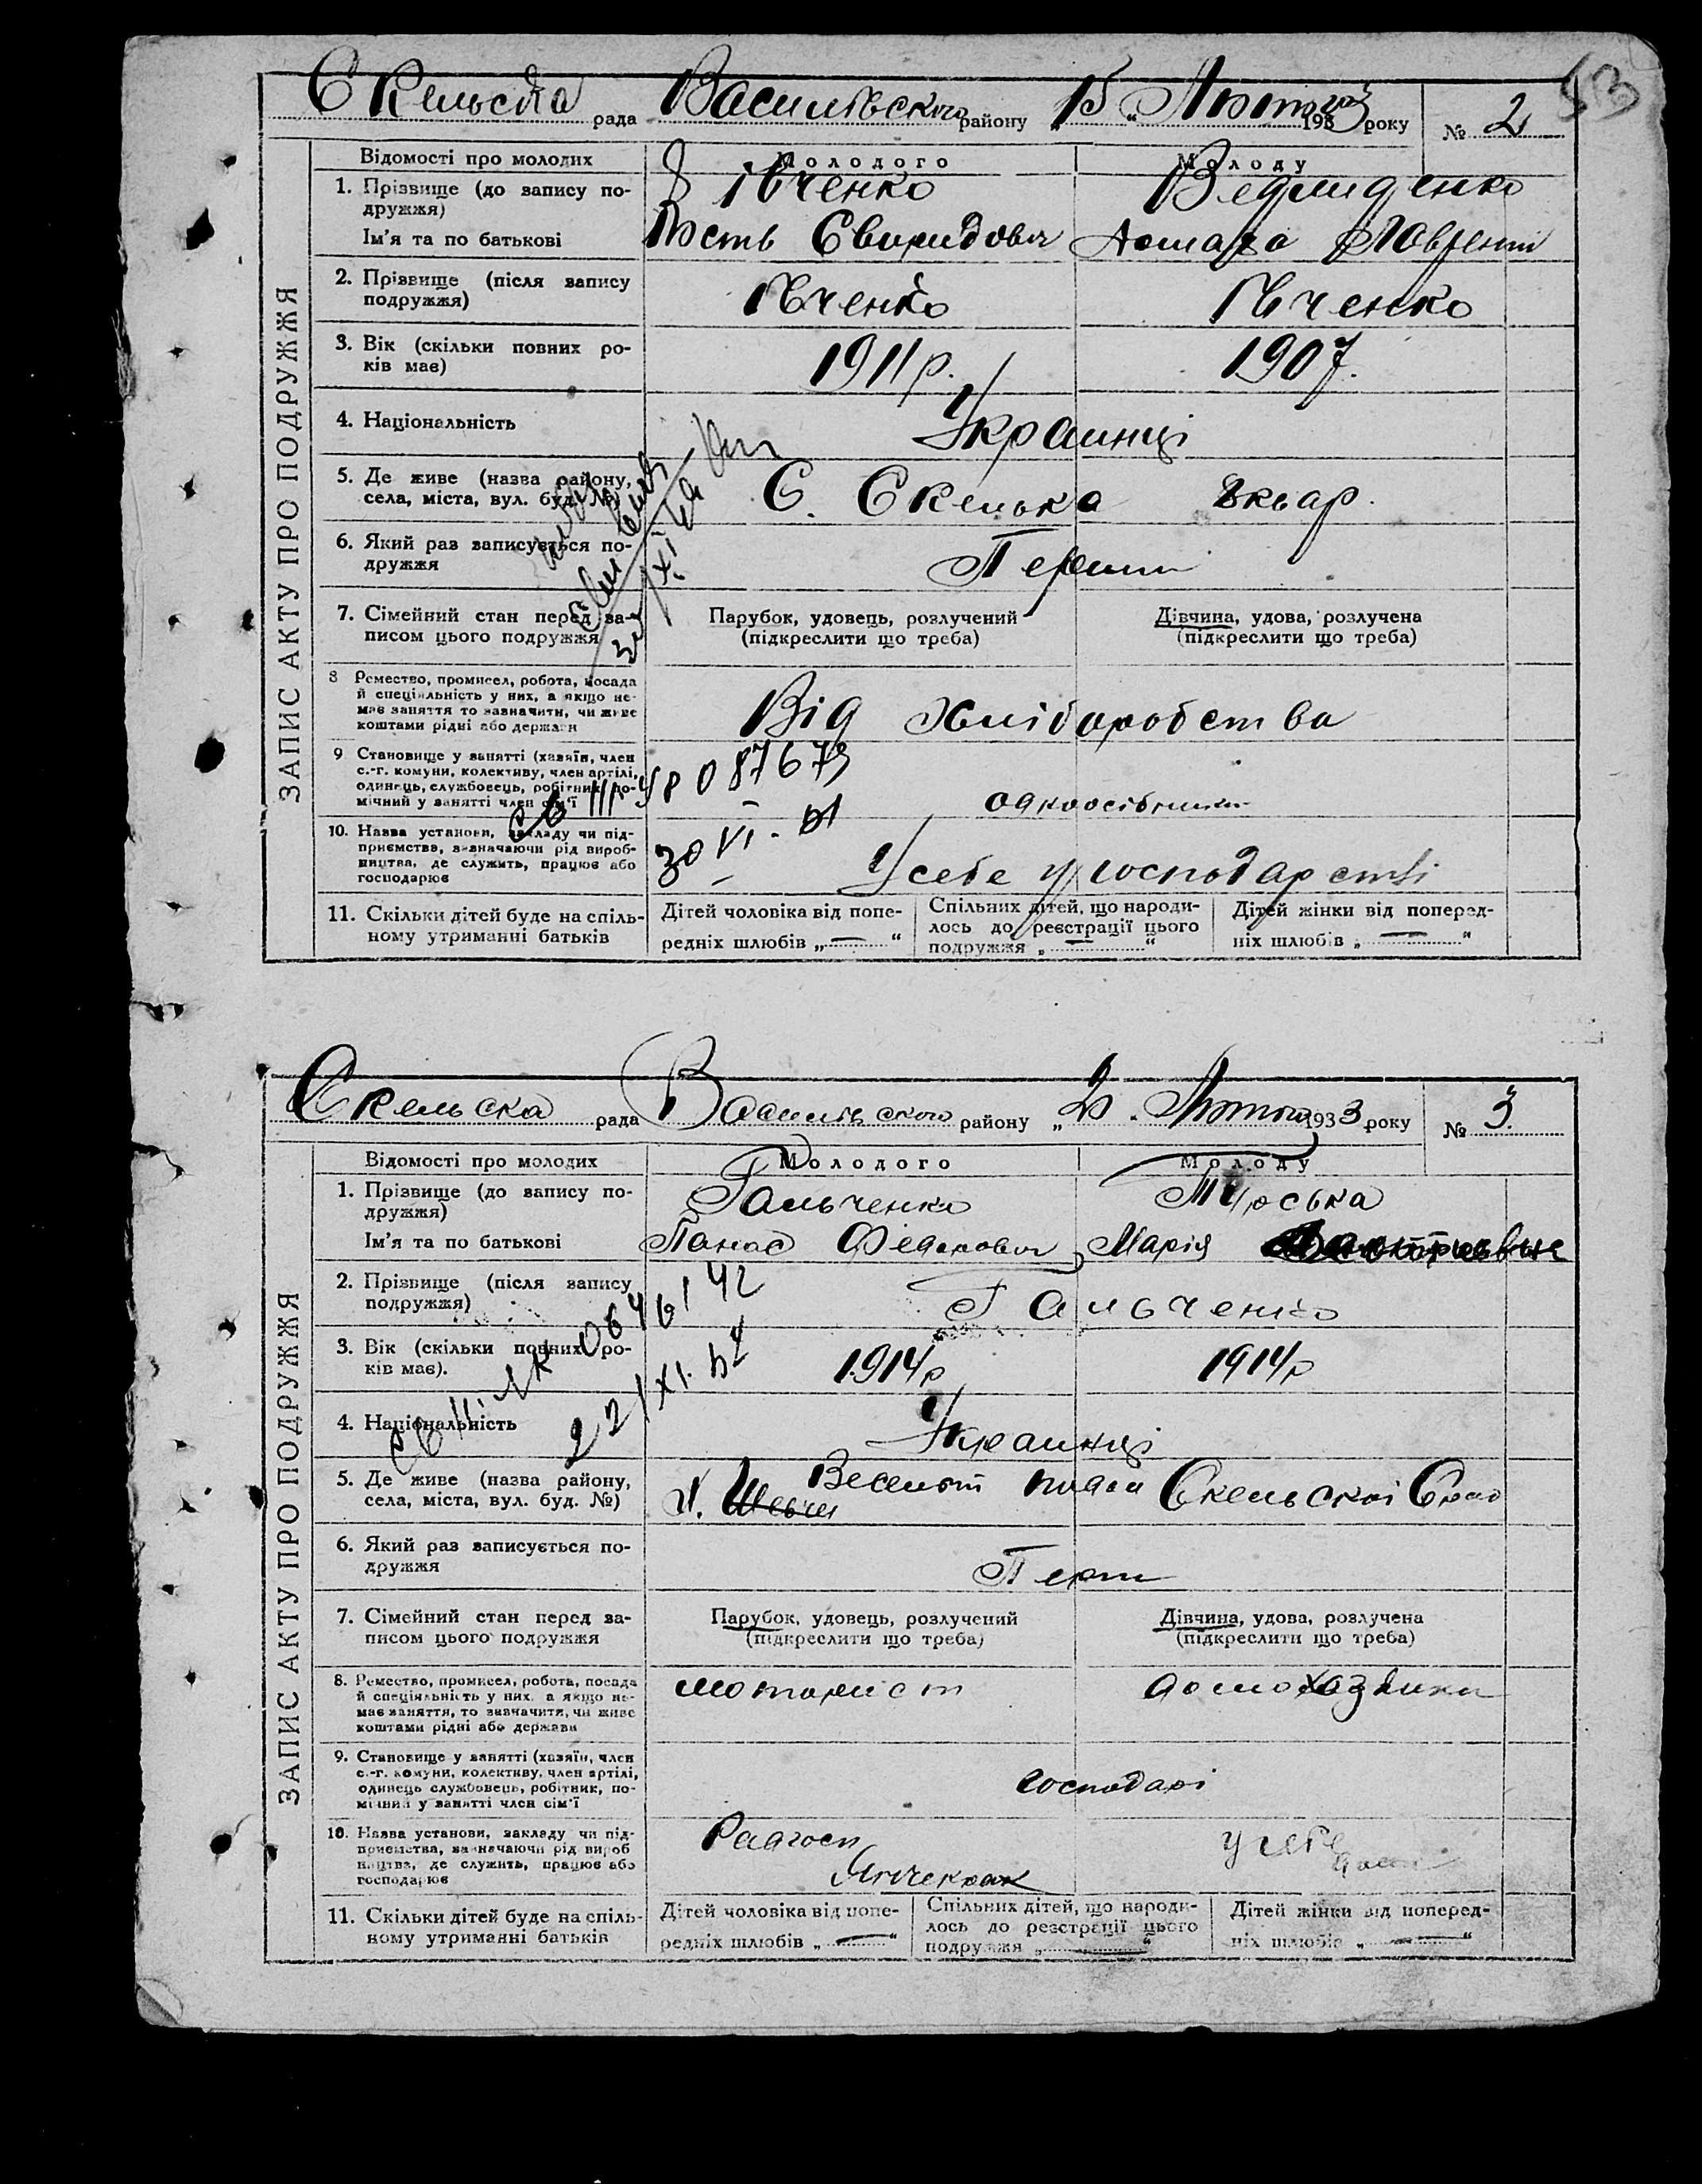 53
Скельська рада Василівського району „15“ Лютого 1933 року № 2
ЗАПИС АКТУ ПРО ПОДРУЖЖЯ
Відомості про молодих Молодого Молоду
1. Прізвище (до запису по-
дружжя)
Івченко
Ім'я та по батькові
Кость Свиридович
2. Прізвище (після запису
подружжя)
Івченко Івченко
3. Вік (скільки повних ро-
ків має)
1911р. 1907.
4. Національність
Украинці
5. Де живе (назва району,
села, міста, вул. буд. №)
С. Скелька
6. Який раз записується по-
дружжя
Перший
7. Сімейний стан перед за-
писом цього подружжя
Парубок, удовець, розлучений
(підкреслити що треба)
Дівчина, удова, розлучена
(підкреслити що треба)
8 Ремество, промисел, робота, посада
й спеціяльність у них, а якщо не-
має заняття то зазначити, чи живе
коштами рідні або держави
Від хліборобства
9 Становище у занятті (хазяїн, член
с.-г. комуни, колективу, член артілі,
одинець, службовець, робітник, по-
мічний у занятті член сім'ї
одноосібники
10. Назва установи, закладу чи під-
приємства, зазначаючи рід вироб-
ництва, де служить, працює або
господарює
У себе у господарстві
11. Скільки дітей буде на спіль-
ному утриманні батьків
Дітей чоловіка від попе-
редніх шлюбів „—“
Спільних дітей, що народи-
лось до реєстрації цього
подружжя „—“
Дітей жінки від поперед-
ніх шлюбів „—“
087673
30 VI -
Скельска рада Василівского району „2“ Лютого 1933 року № 3
ЗАПИС АКТУ ПРО ПОДРУЖЖЯ
Відомості про молодих Молодого Молоду
1. Прізвище (до запису по-
дружжя)
Гальченко Турська
Ім'я та по батькові
Панас Федорович Марія
2. Прізвище (після запису
подружжя)
Гальченко
3. Вік (скільки повних ро-
ків має).
1914р 1914р
4. Національність
Украинці
5. Де живе (назва району,
села, міста, вул. буд. №)
Скельскоі
6. Який раз записується по-
дружжя
7. Сімейний стан перед за-
писом цього подружжя
Парубок, удовець, розлучений
(підкреслити що треба)
Дівчина, удова, розлучена
(підкреслити що треба)
8. Ремество, промисел, робота, посада
й спеціяльність у них, а якщо не-
має заняття, то зазначити, чи живе
коштами рідні або держави
моторист домохазяйка
9. Становище у занятті (хазяїн, член
с.-г. комуни, колективу, член артілі,
одинець службовець, робітник, по-
мічний у занятті член сім'ї
господарі
10. Назва установи, закладу чи під-
приємства, зазначаючи рід вироб
ництва, де служить, працює або
господарює
Радгосп
Янчекрак
у себе
11. Скільки дітей буде на спіль-
ному утриманні батьків
Дітей чоловіка від попе-
редніх шлюбів „—“
Спільних дітей, що народи-
лось до реєстрації цього
подружжя „—“
Дітей жінки від поперед-
ніх шлюбів „—“